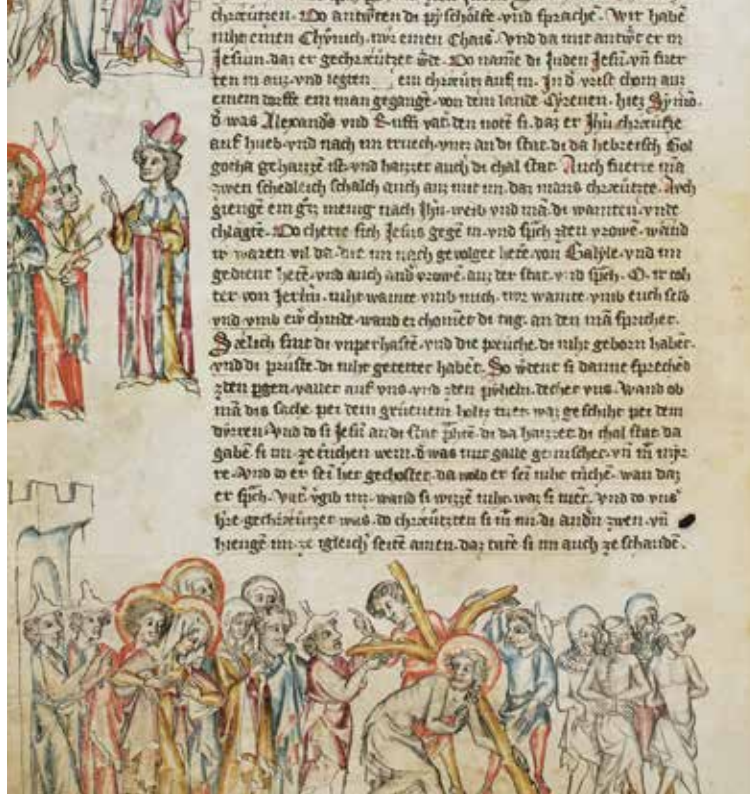 chræutzen. Do antw̄rten di pyschölfe vnd sprachē. Wir habē
niht einen Chv̈nich. nvr einen Chais̄. Vnd da mit antw̄rt er in
Jesum. daz er gechræutzet w̄de. Do namē di Juden Jesū. vn̄ fuer
ten in auz. vnd legten ein chræutz auf in. In d̄ vrist chom auz
einem dorffe ein man gegangē. von dem lande Cyrenen. hiez Symō.
d̄ was Alexand̄s vnd Ruffi vat̄. den nōtt si. daz er Jhū chræutze
auf hueb. vnd nach im truech. vntz an di stat. di da hebreisch Gol
gotha gehaizzē ist. vnd haizzet auch di chal stat. Auch fuerte mā
zwen schedleich schalch auch auz mit im. daz mans chræutzte. Auch
giengē ein gz̄ menig nach Jhū. weib vnd mā. di wainten. vnde
chlagtē. Do cherte sich Jesus gegē in. vnd sp̄ch zden vrowē. wand
ir waren vil da. die im nach geuolget hetē. von Galyle. vnd im
gedient hetē. vnd auch and̄ vrowē. auz der stat. vnd sp̄ch. O. ir toh
ter von Jerlm̄. niht waint vmb mich. nvr waint. vmb euch selb
vnd vmb ew̄ chinde. wand er chomēt di tag. an den mā sprichet.
Sælich sint di vnperhaftē. vnd die pæuche. di niht geborn habēt.
vnd di prüste. di niht getenttet habēt. So w̄dent si danne sprechēd
zden pgen. vallet auf vns. vnd zden pv̈heln. dechet vns. Wand ob
mā dis sache. pei dem grüenem holtz tuet. waz geschiht pei dem
dv̈rren. Vnd do si Jesū an di stat p̄htē. di da haizzet. di chal stat. da
gabē si im. ze trichen wein. d̄ was mit galle gemischet. vn̄ m̄ mirr
re. Vnd do er sei het gechostet. da wold er sei niht trichē. wan daz
er sp̄ch. Vat̄. v̄gib in. wand si wizzē niht. waz si tuēt. Vnd do vns̄
h̄re gechræutzet was. do chræutzten si m̄ im. di and̄n zwen. vn̄
hiengē im. ze igleich̄ seitē ainen. daz tatē si im auch ze schandē.